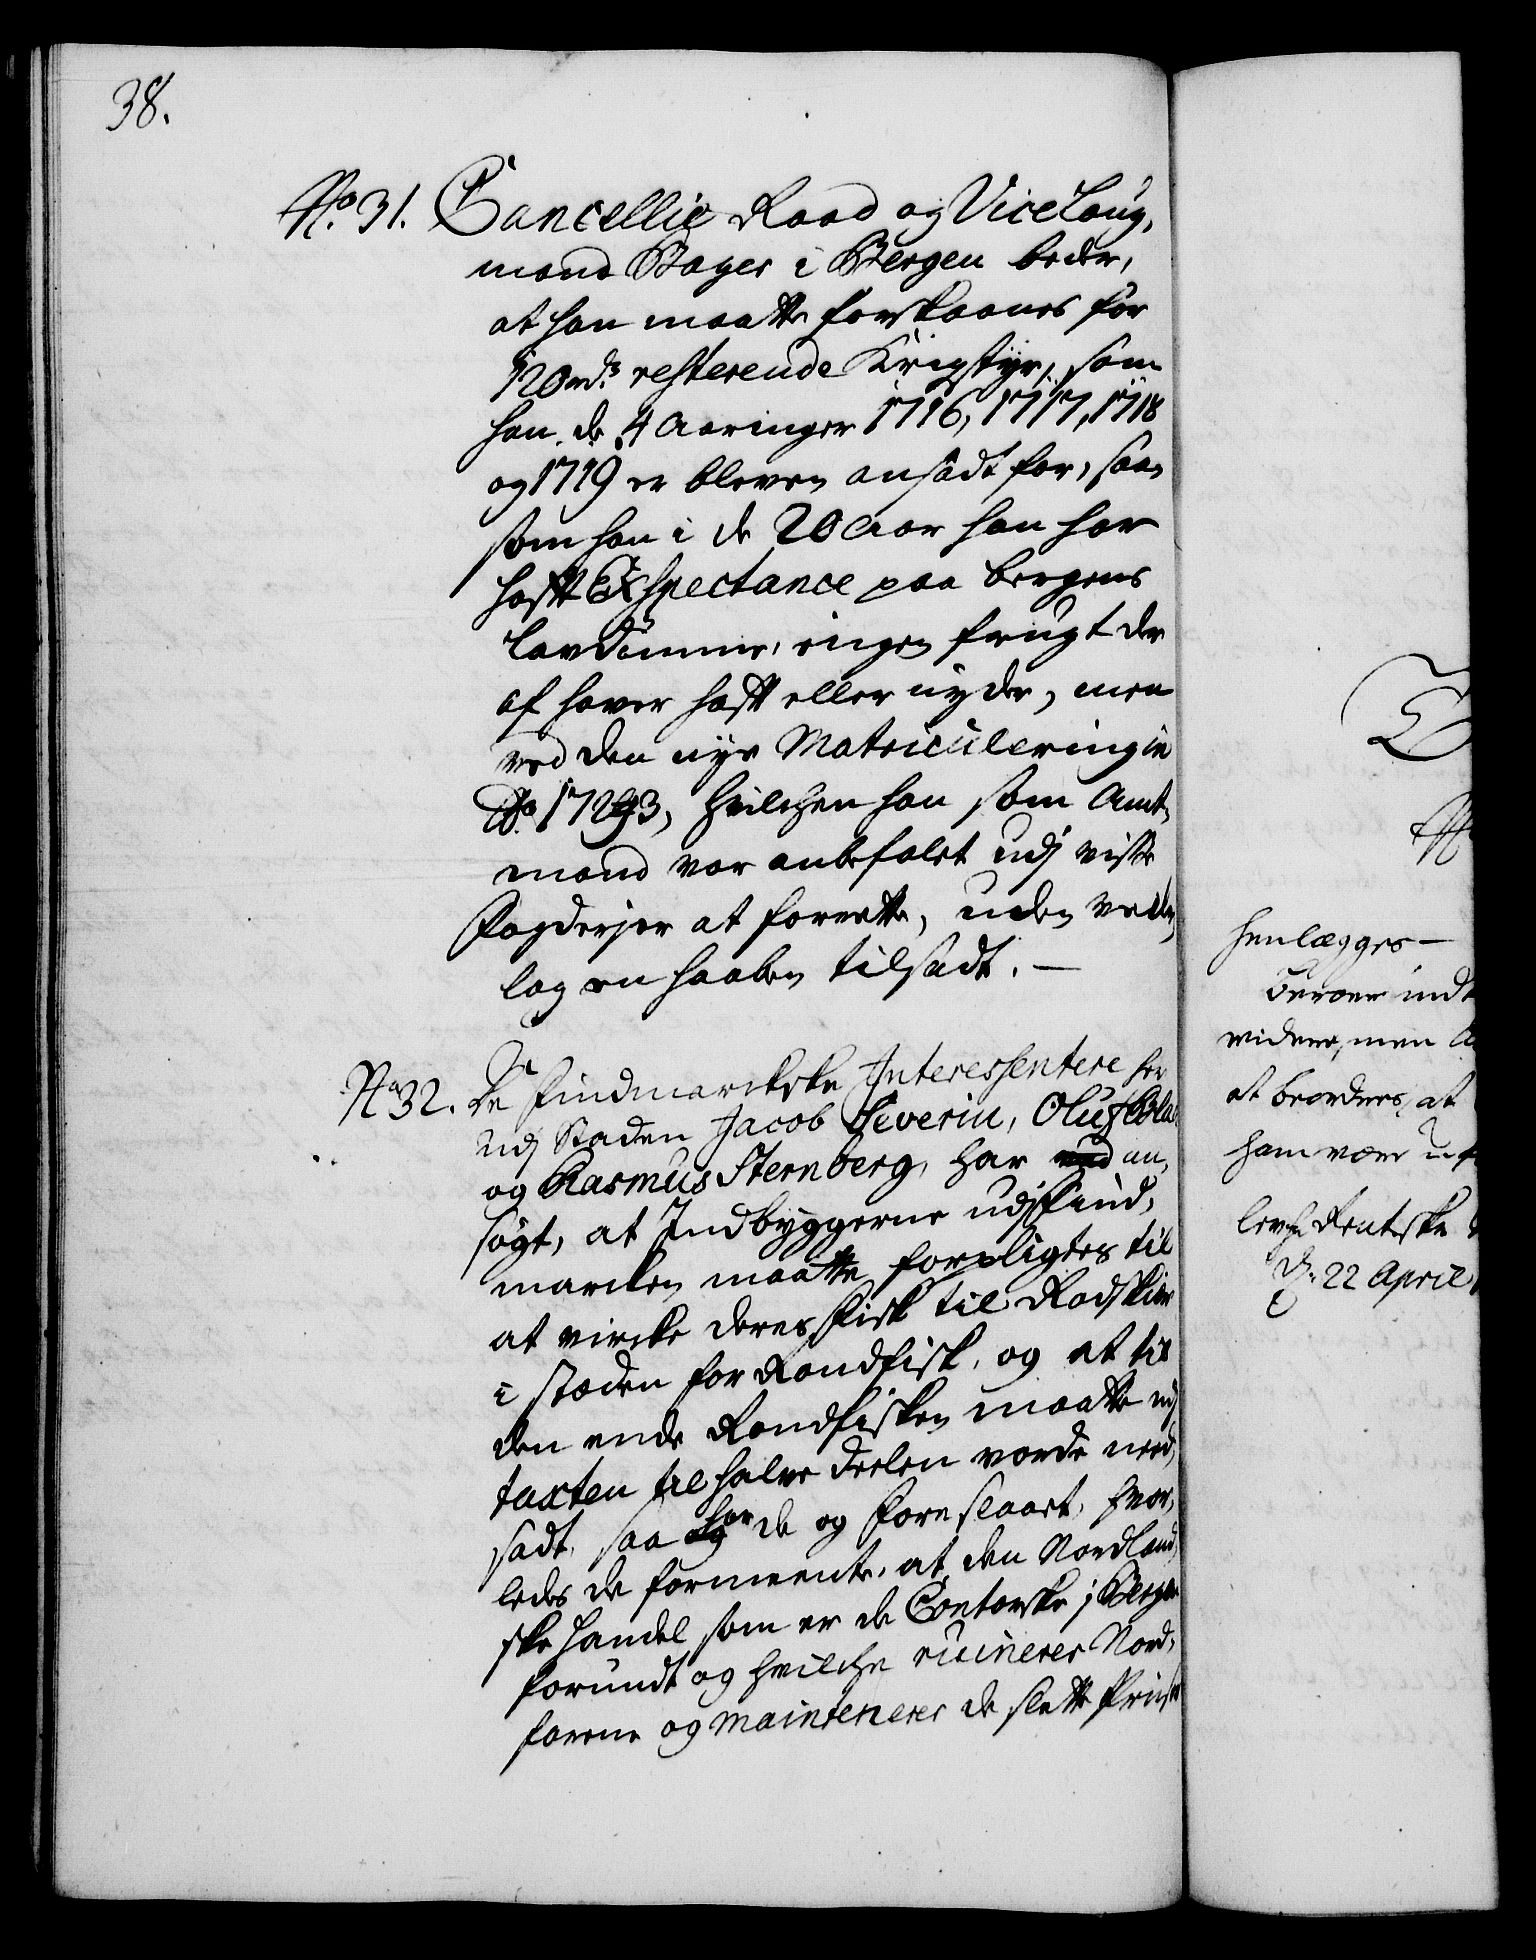 38.
No. 31. Cancellie Raad og Vice Laug,
mand Bager i Bergen beder,
at han maatte forskaanes for
120 rd.s resterende Krigstyr, som
han de 4 Aaringer 1716, 1717, 1718
og 1719 er bleven ansadt for, saa,
som han i de 20 Aar han har
hafft Exspectance paa Bergens
Lavdømme, ingen frugt der
af haver hafft eller nyder, men
ved den nye Matriculering in
Ao. 1723, hvilchen han som Amt,
mand var anbefalet udj visse
Fogderjer at forrette, uden veder,
lag en haaben tilsadt. —
No 32. De Findmarckske Interessentere her
udj Staden Jacob Severin, Oluf Blac
og Rasmus Sternberg, har an,
søgt, at Indbyggerne udj Find,
marcken maatte forpligtes til
at vircke deres Fisk til Rodskier
i stæden for Rondfisk, og at til
den ende Rondfisken maatte udj
taxten til halve deelen vorde need,
sadt, saa har de og foreslaaet, hvor,
ledes de formeente, at den Nordland,
ske handel som er de Contorske j Bergen
forundt og hvilche ruinerer Nord,
farene og mainténerer de slette Priser
henlægges —
indt
videre, men
at beordres, at
ham være
Rentske
d. 22 April